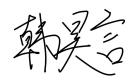 韩昊言